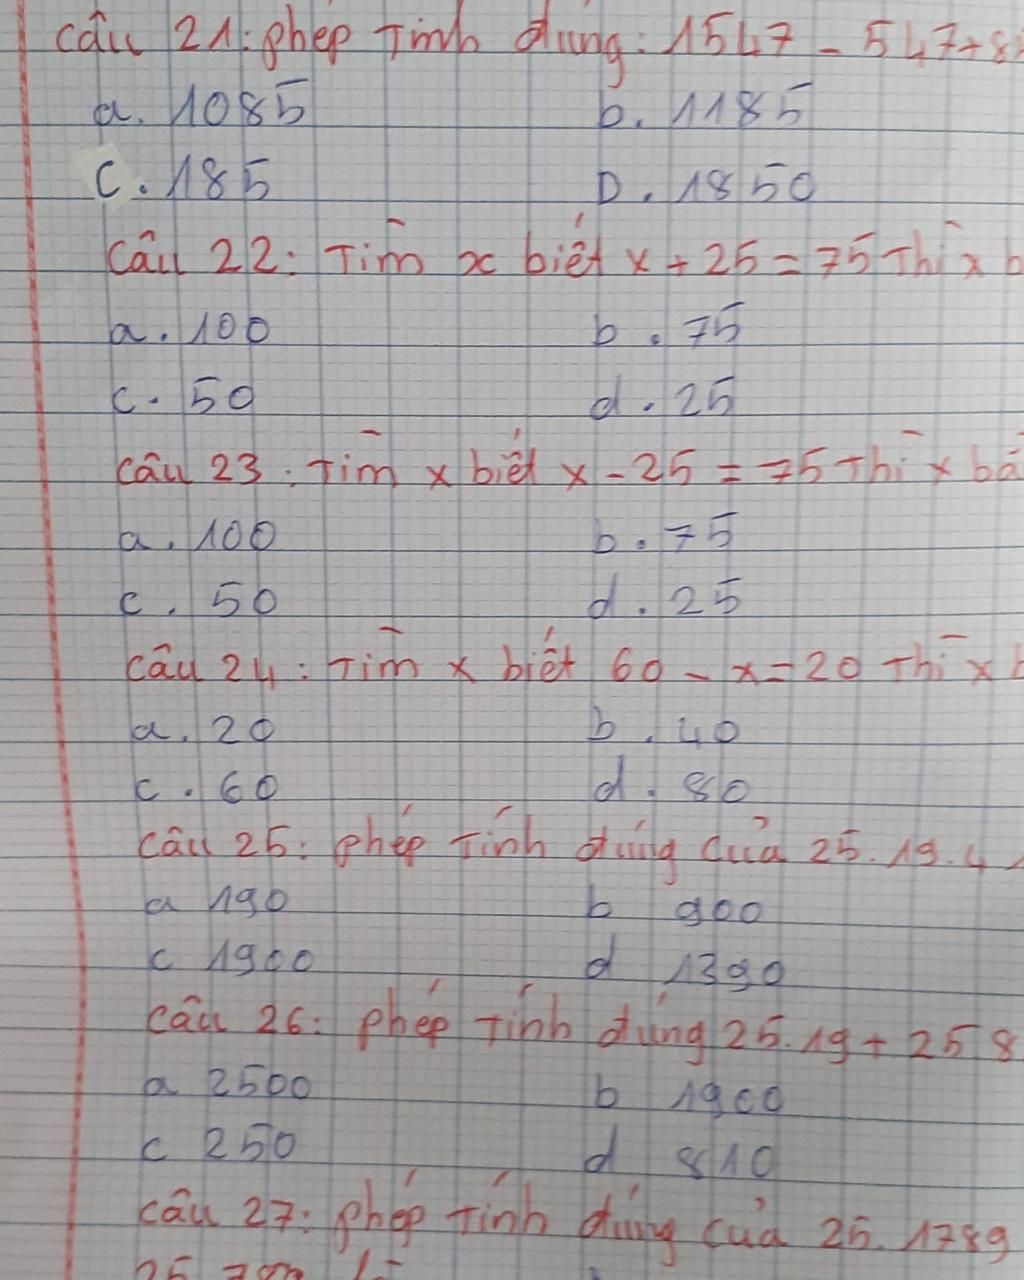 câu 21: phép Tính đúng: 1547 - 547 + 8
a. 1085 b. 1185
c. 185 D. 1850
câu 22: Tìm x biết x + 25 = 75 Thì x b
a. 100 b. 75
c. 50 d. 25
câu 23: Tìm x biết x - 25 = 75 Thì x bă
a. 100 b. 75
c. 50 d. 25
câu 24: Tìm x biết 60 - x = 20 Thì x b
a. 20 b. 40
c. 60 d. 80
câu 25: phép Tính đúng của 25.19.4
a 190 b 900
c 1900 d 1390
câu 26: phép Tính đúng 25.19 + 25 8
a 2500 b 1900
c 250 d 810
câu 27: phép Tính đúng của 25.1789
25